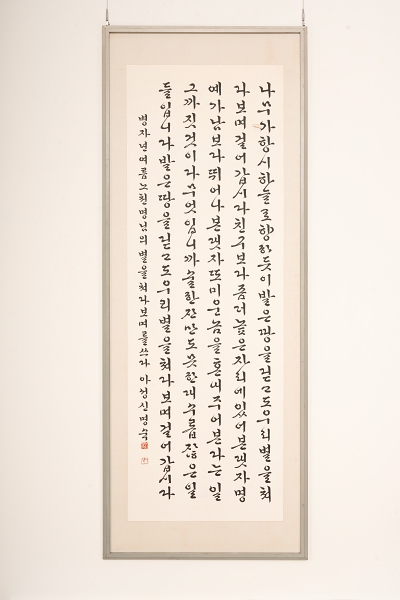 나무가항시하늘로향하듯이발은땅을딛고도우리별을쳐
다보며걸어갑시다친구보다좀더높은자리에있어본댓자명
예가남보다뛰어나본댓자또미운놈을혼내주어본다는일
그까짓것이다무엇입니까술한잔만도못한대수롭잖은일
들입니다발은땅을딛고도우리별을쳐다보며걸어갑시다
병자년여름노천명님의별을쳐다보며를쓰다 신명숙